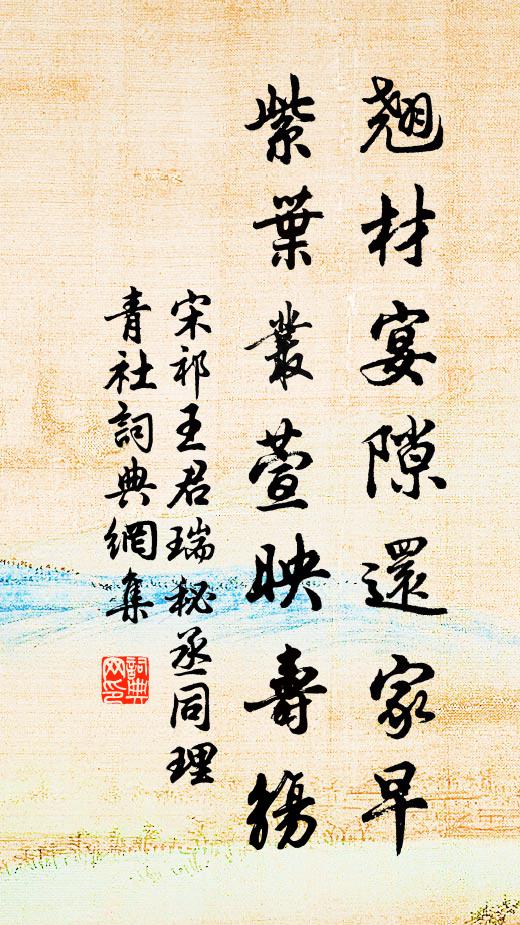 翹材宴隙還家早
紫葉叢萱映壽觴
宋祁王君瑞秘丞同理
青社詞典網集
詞典
网印